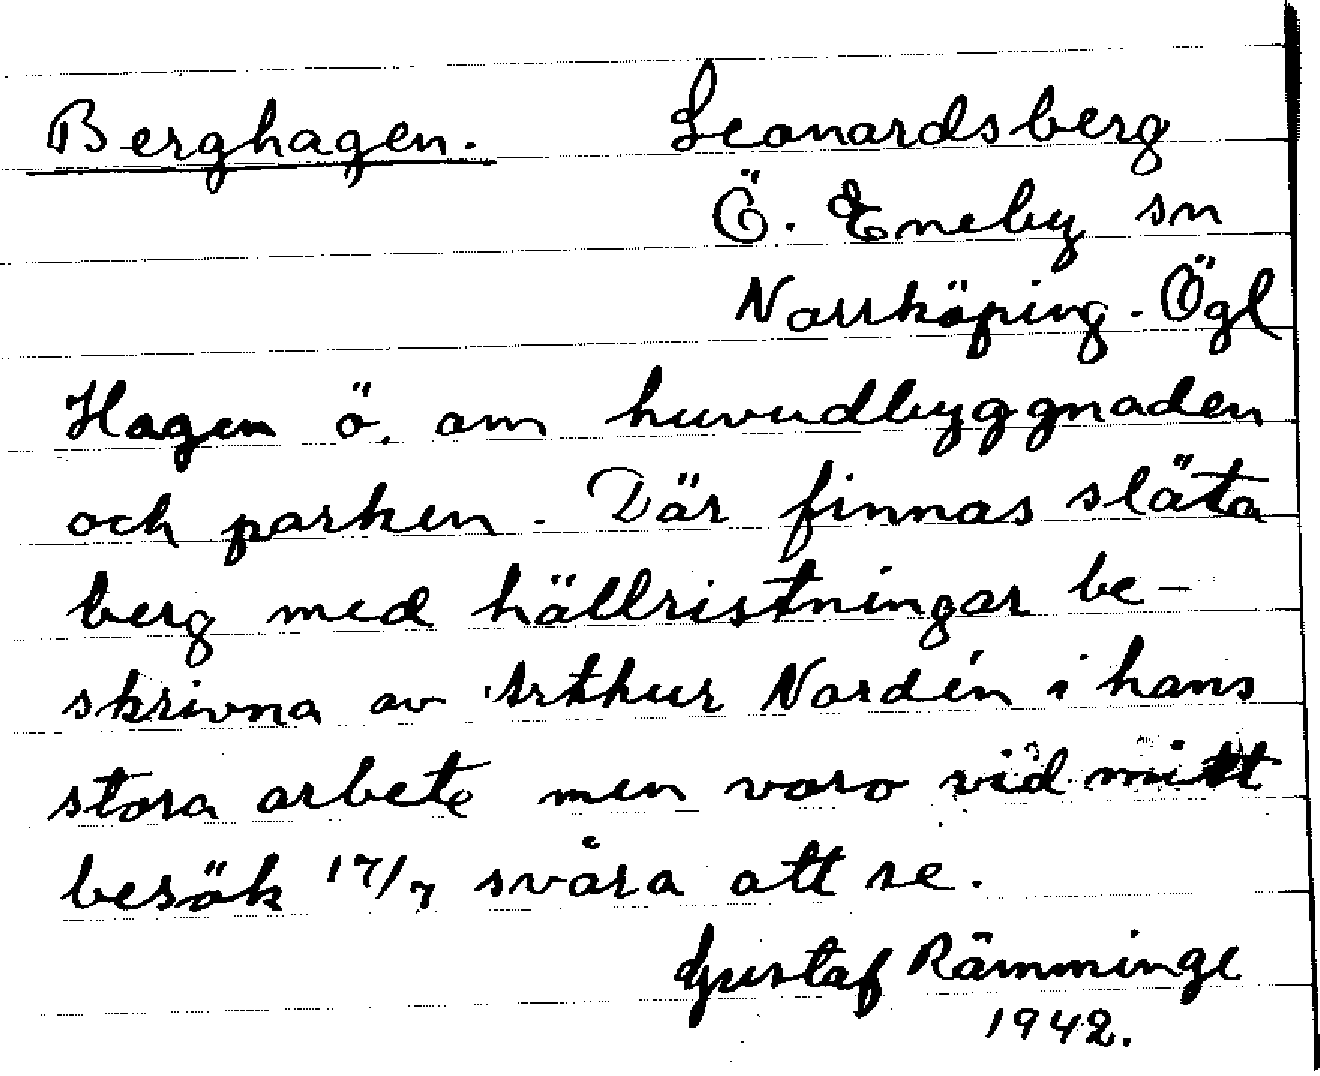 Berghagen. Leonardsberg
Ö. Eneby sn
Norrköping. Ögl
Hagen ö. om huvudbyggnaden
och parken. Där finnas släta
berg med hällristningar be-
skrivna av Arthur Nordén i hans
stora arbete men voro vid mitt
besök 17/7 svåra att se.
Gustaf Rämminge
1942.